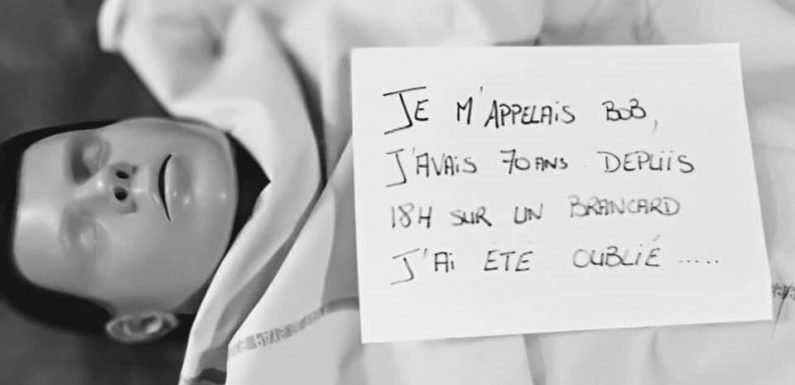 JE M'APPELAIS BOB,
J'AVAIS 70 ANS DEPUIS
18H SUR UN BRANCARD
J'AI ÉTÉ OUBLIÉ .....